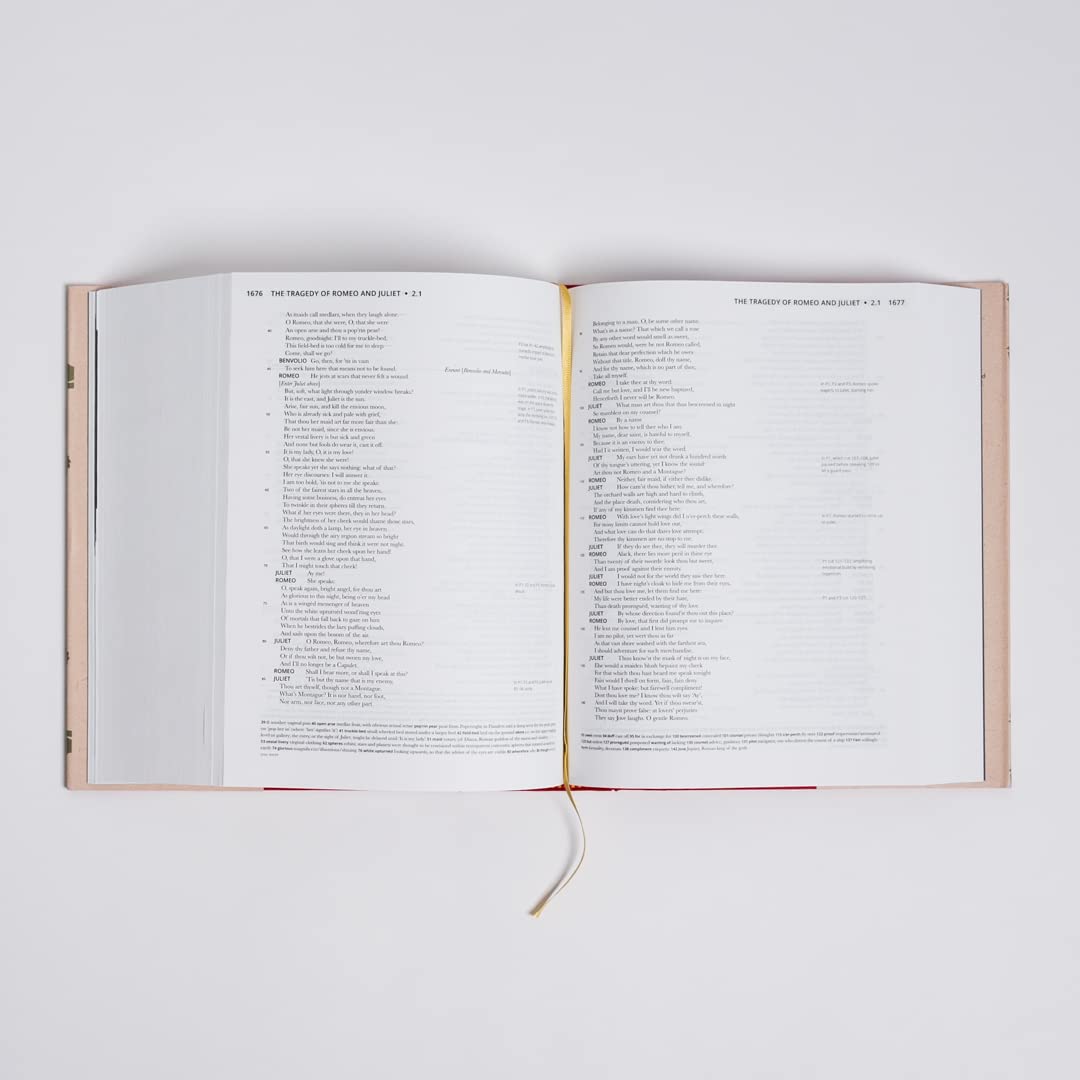 1676 THE TRAGEDY OF ROMEO AND JULIET • 2.1
As maids call medlars, when they laugh alone.
O Romeo, that she were, O, that she were
An open arse and thou a pop'rin pear!
Romeo, goodnight: I'll to my truckle-bed,
This field-bed is too cold for me to sleep.
Come, shall we go?
BENVOLIO Go, then, for 'tis in vain
To seek him here that means not to be found.
Exeunt [Benvolio and Mercutio]
ROMEO He jests at scars that never felt a wound.
[Enter Juliet above]
But, soft, what light through yonder window breaks?
It is the east, and Juliet is the sun.
Arise, fair sun, and kill the envious moon,
Who is already sick and pale with grief,
That thou her maid art far more fair than she:
Be not her maid, since she is envious:
Her vestal livery is but sick and green
And none but fools do wear it, cast it off.
It is my lady, O, it is my love!
O, that she knew she were!
She speaks yet she says nothing: what of that?
Her eye discourses: I will answer it.
I am too bold, 'tis not to me she speaks:
Two of the fairest stars in all the heaven,
Having some business, do entreat her eyes
To twinkle in their spheres till they return.
What if her eyes were there, they in her head?
The brightness of her cheek would shame those stars,
As daylight doth a lamp, her eye in heaven
Would through the airy region stream so bright
That birds would sing and think it were not night.
See how she leans her cheek upon her hand!
O, that I were a glove upon that hand,
That I might touch that cheek!
JULIET Ay me!
ROMEO She speaks:
O, speak again, bright angel, for thou art
As glorious to this night, being o'er my head
As is a winged messenger of heaven
Unto the white upturned wond'ring eyes
Of mortals that fall back to gaze on him
When he bestrides the lazy puffing clouds,
And sails upon the bosom of the air.
JULIET O Romeo, Romeo, wherefore art thou Romeo?
Deny thy father and refuse thy name,
Or if thou wilt not, be but sworn my love,
And I'll no longer be a Capulet.
ROMEO Shall I hear more, or shall I speak at this?
JULIET 'Tis but thy name that is my enemy.
Thou art thyself, though not a Montague.
What's Montague? It is nor hand, nor foot,
Nor arm, nor face, nor any other part
THE TRAGEDY OF ROMEO AND JULIET • 2.1 1677
Belonging to a man. O, be some other name.
What's in a name? That which we call a rose
By any other word would smell as sweet,
So Romeo would, were he not Romeo called,
Retain that dear perfection which he owes
Without that title. Romeo, doff thy name,
And for thy name, which is no part of thee,
Take all myself.
ROMEO I take thee at thy word.
Call me but love, and I'll be new baptized,
Henceforth I never will be Romeo.
JULIET What man art thou that thus bescreened in night
So stumblest on my counsel?
ROMEO By a name
I know not how to tell thee who I am.
My name, dear saint, is hateful to myself,
Because it is an enemy to thee,
Had I it written, I would tear the word.
JULIET My ears have yet not drunk a hundred words
Of thy tongue's uttering, yet I know the sound:
Art thou not Romeo and a Montague?
ROMEO Neither, fair maid, if either thee dislike.
JULIET How cam'st thou hither, tell me, and wherefore?
The orchard walls are high and hard to climb,
And the place death, considering who thou art,
If any of my kinsmen find thee here.
ROMEO With love's light wings did I o'er-perch these walls,
For stony limits cannot hold love out,
And what love can do that dares love attempt:
Therefore thy kinsmen are no stop to me.
JULIET If they do see thee, they will murder thee.
ROMEO Alack, there lies more peril in thine eye
Than twenty of their swords: look thou but sweet,
And I am proof against their enmity.
JULIET I would not for the world they saw thee here.
ROMEO I have night's cloak to hide me from their eyes,
And but thou love me, let them find me here:
My life were better ended by their hate,
Than death prorogued, wanting of thy love.
JULIET By whose direction found'st thou out this place?
ROMEO By love, that first did prompt me to inquire
He lent me counsel and I lent him eyes.
I am no pilot, yet wert thou as far
As that vast shore washed with the farthest sea,
I should adventure for such merchandise.
JULIET Thou know'st the mask of night is on my face,
Else would a maiden blush bepaint my cheek
For that which thou hast heard me speak tonight
Fain would I dwell on form, fain, fain deny
What I have spoke: but farewell compliment!
Dost thou love me? I know thou wilt say 'Ay',
And I will take thy word. Yet if thou swear'st,
Thou mayst prove false: at lovers' perjuries
They say Jove laughs. O gentle Romeo,